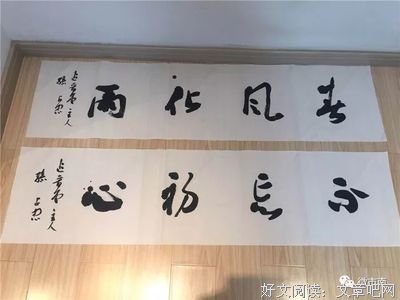 春风化雨
主人
不忘初心
主人
好文阅读：文章吧网